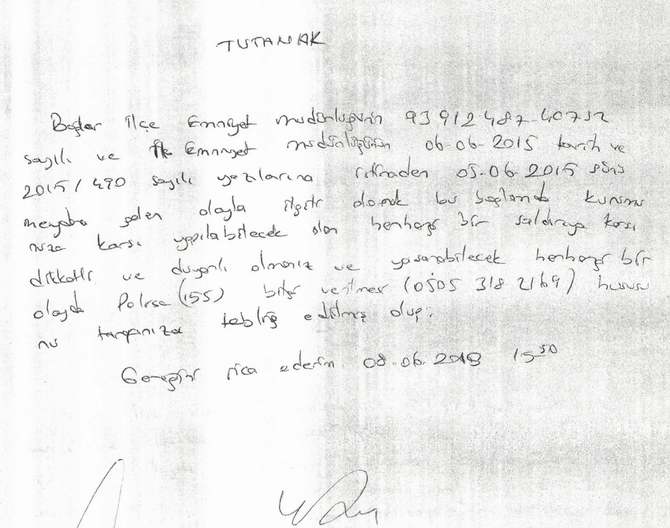 TUTANAK
Bağlar İlçe Emniyet müdürlüğünün 93912487-40732
sayılı ve İlk Emniyet müdürlüğünün 06-06-2015 tarih ve
2015/490 sayılı yazılarına istinaden 05-06-2015 günü
meydana gelen olayla ilgili olarak bu bağlamda kurumu
nuza karşı yapılabilecek olan herhangi bir saldırıya karşı
dikkatli ve duyarlı olmanız ve yaşanabilecek herhangi bir
olayda Polise (155) bilgi verilmesi (0505 318 2169) hususu
nu tarafınıza tebliğ edilmiş olup;
Gereğini rica ederim. 08.06.2015 15 50